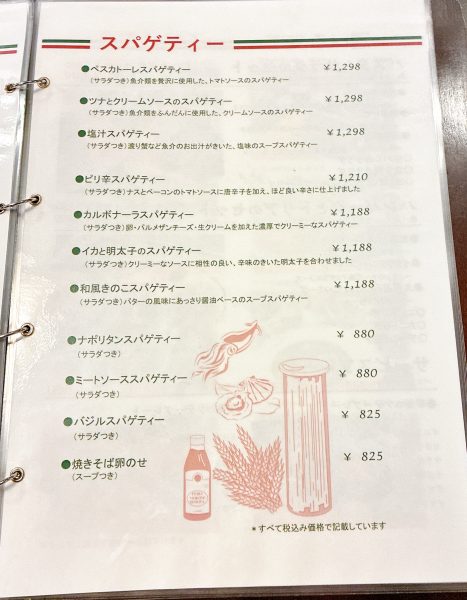 スパゲティー
●ペスカトーレスパゲティー ￥1,298
(サラダつき)魚介類を贅沢に使用した、トマトソースのスパゲティー
●ツナとクリームソースのスパゲティー ￥1,298
(サラダつき)魚介類をふんだんに使用した、クリームソースのスパゲティー
●塩汁スパゲティー ￥1,298
(サラダつき)渡り蟹など魚介のお出汁がきいた、塩味のスープスパゲティー
●ピリ辛スパゲティー ￥1,210
(サラダつき)ナスとベーコンのトマトソースに唐辛子を加え、ほど良い辛さに仕上げました
●カルボナーラスパゲティー ￥1,188
(サラダつき)卵・パルメザンチーズ・生クリームを加えた濃厚でクリーミーなスパゲティー
●イカと明太子のスパゲティー ￥1,188
(サラダつき)クリーミーなソースに相性の良い、辛味のきいた明太子を合わせました
●和風きのこスパゲティー ￥1,188
(サラダつき)バターの風味にあっさり醤油ベースのスープスパゲティー
●ナポリタンスパゲティー ￥ 880
(サラダつき)
●ミートソーススパゲティー ￥ 880
(サラダつき)
●バジルスパゲティー ￥ 825
(サラダつき)
●焼きそば卵のせ ￥ 825
(スープつき)
＊すべて税込み価格で記載しています